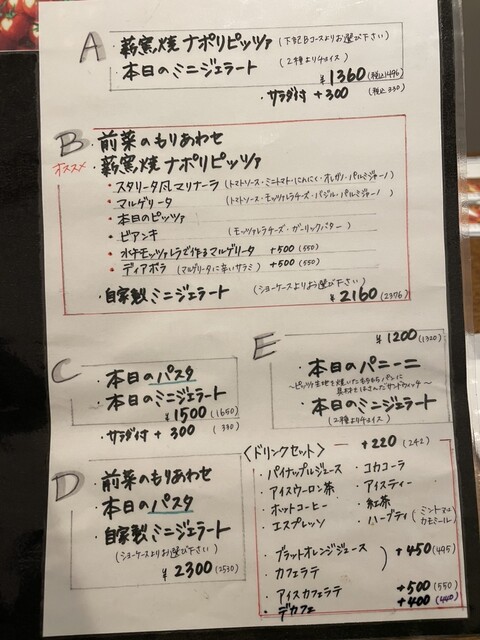 A
・薪窯焼 ナポリピッツァ (下記Bコースよりお選び下さい)
・本日のミニジェラート (2種よりチョイス)
¥1360 (税込1496)
・サラダ付 +300 (税込330)
B
オススメ
・前菜のもりあわせ
・薪窯焼 ナポリピッツァ
・スタリータ風マリナーラ (トマトソース・ミニトマト・にんにく・オレガノ・パルミジャーノ)
・マルゲリータ (トマトソース・モッツァレラチーズ・バジル・パルミジャーノ)
・本日のピッツァ
・ビアンキ (モッツァレラチーズ・ガーリックバター)
・水牛モッツァレラで作るマルゲリータ +500 (550)
・ディアボラ (マルゲリータに辛いサラミ) +500 (550)
・自家製ミニジェラート (ショーケースよりお選び下さい)
¥2160 (2376)
C
・本日のパスタ
・本日のミニジェラート
¥1500 (1650)
・サラダ付 +300 (330)
D
・前菜のもりあわせ
・本日のパスタ
・自家製ミニジェラート
(ショーケースよりお選び下さい)
¥2300 (2530)
E
¥1200 (1320)
・本日のパニーニ
〜ピッツァ生地を焼いたもちもちパンに
具材をはさんだサンドウィッチ〜
・本日のミニジェラート
(2種よりチョイス)
〈ドリンクセット〉 +220 (242)
・パイナップルジュース ・コカコーラ
・アイスウーロン茶 ・アイスティー
・ホットコーヒー ・紅茶
・エスプレッソ ・ハーブティ (ミントマリ
カモミール)
・ブラッドオレンジジュース
・カフェラテ
) +450 (495)
・アイスカフェラテ +500 (550)
・デカフェ +400 (440)